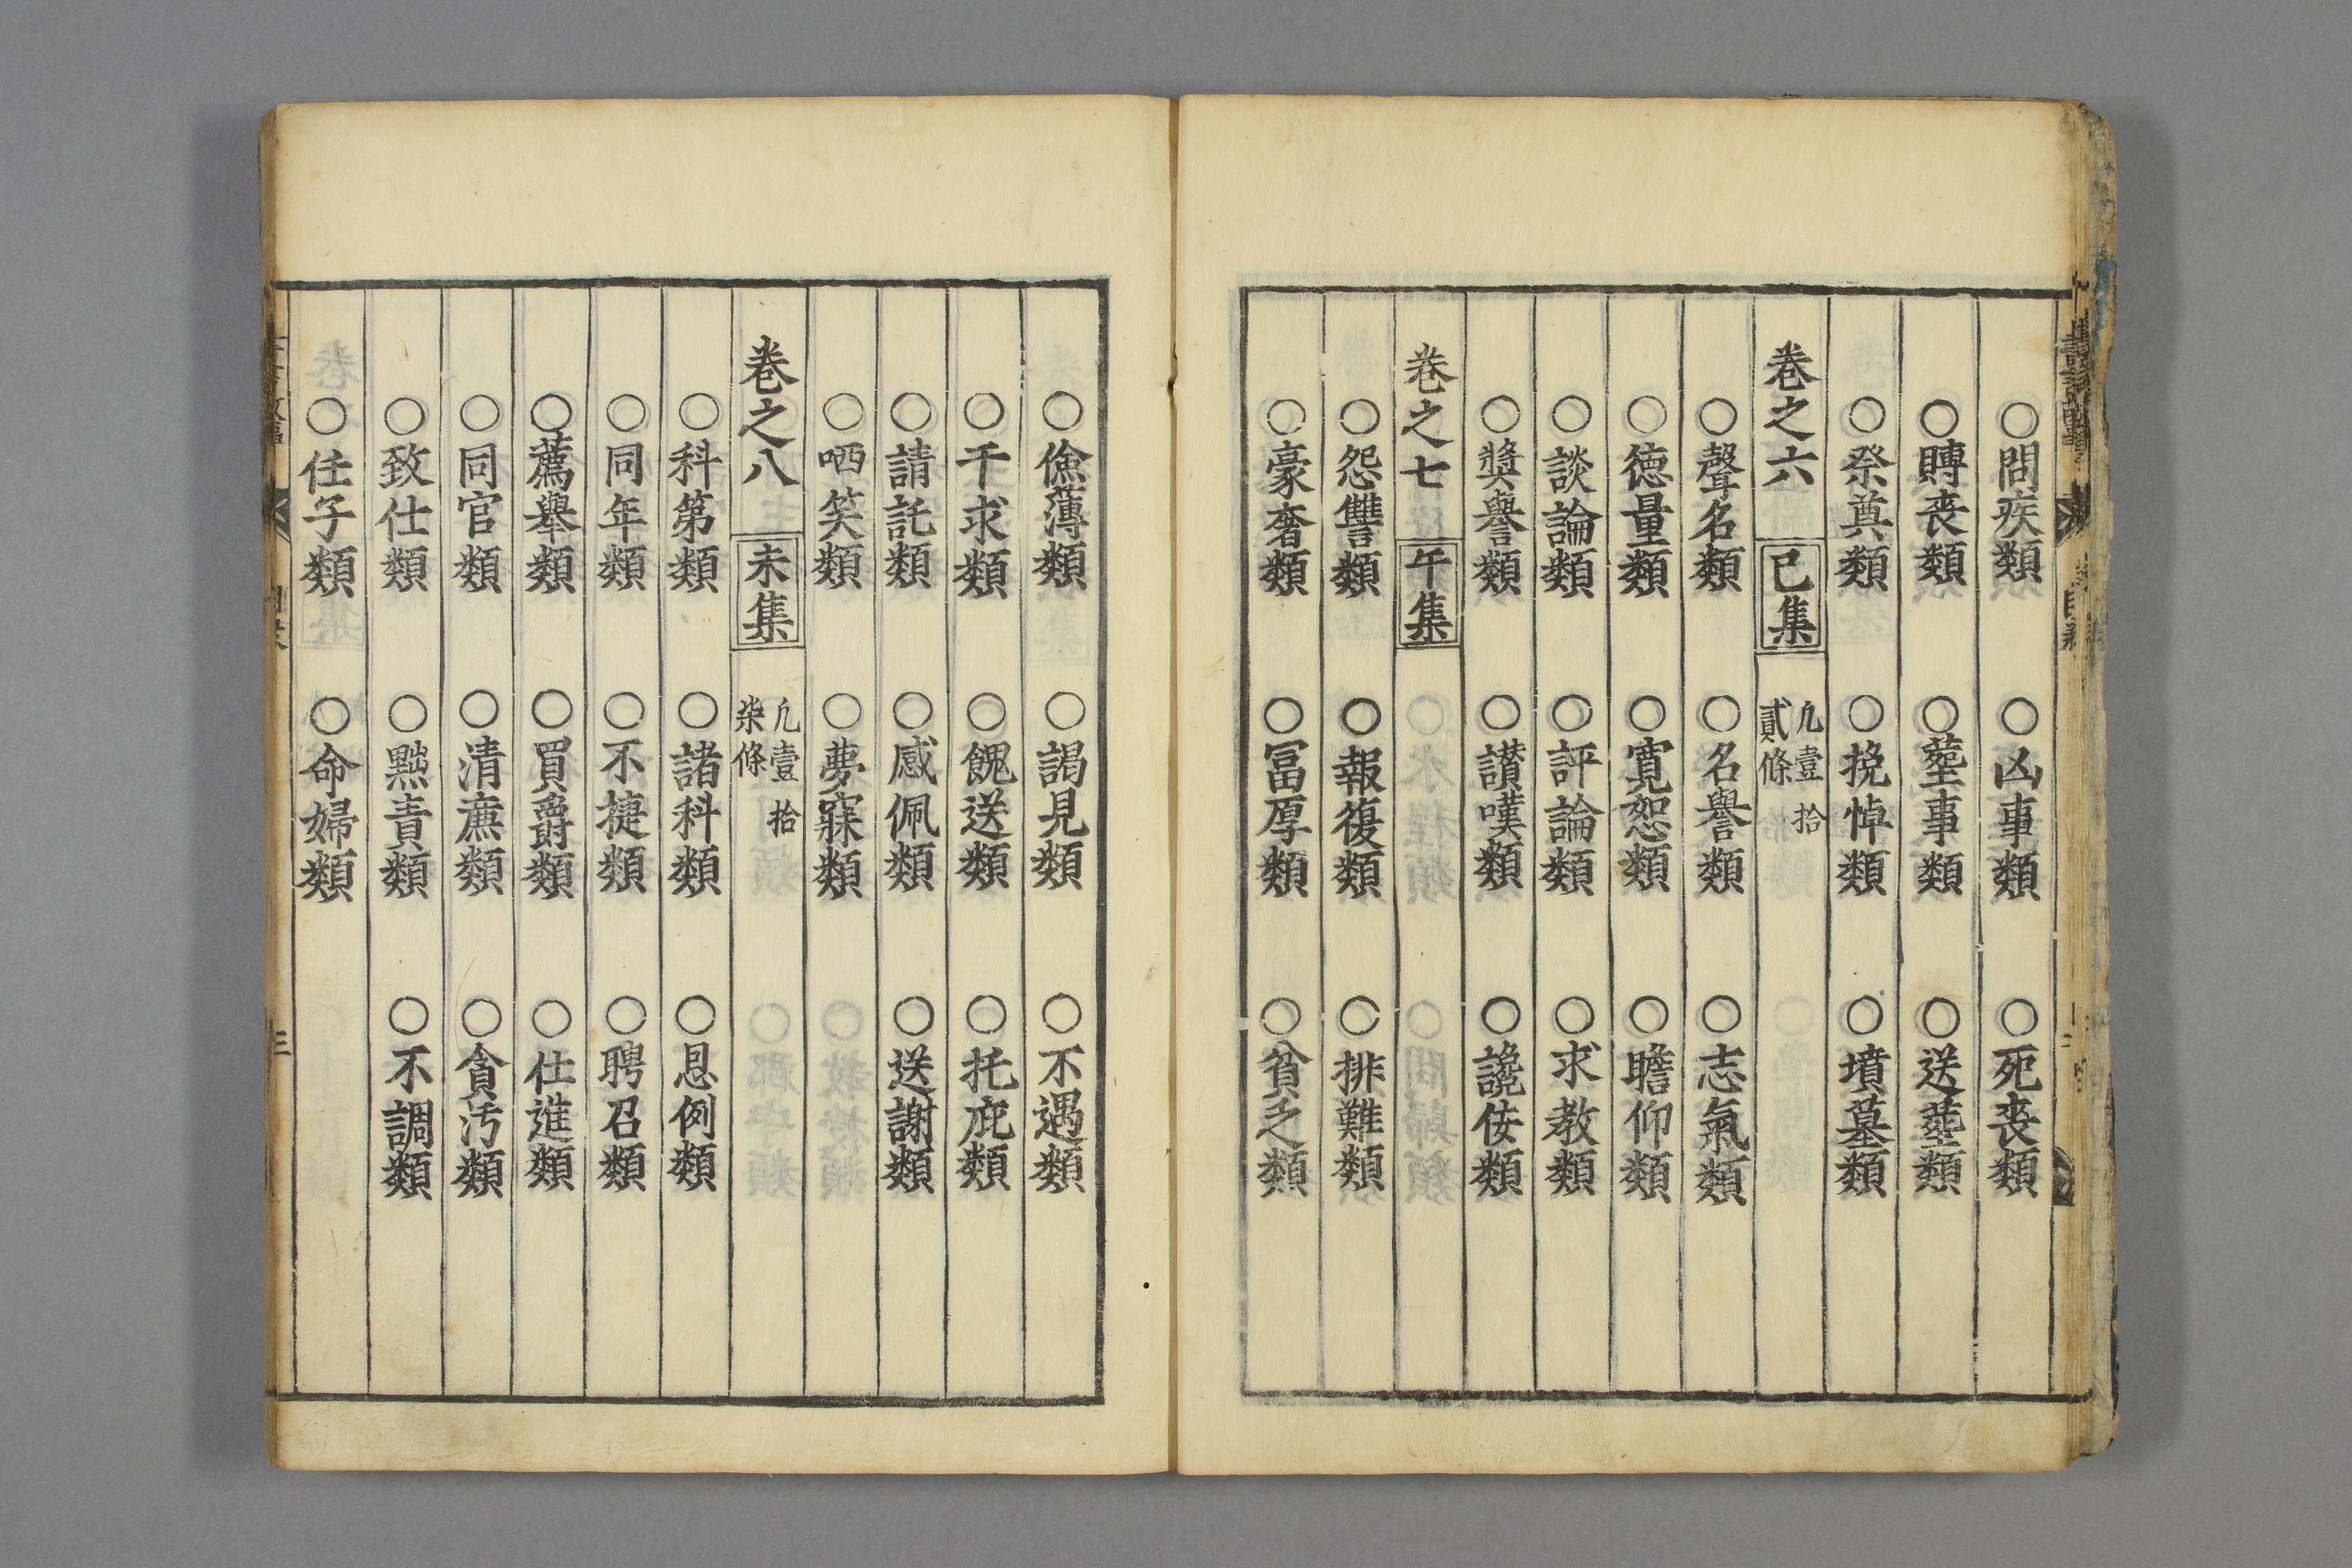 ○問疾類 ○凶事類 ○死䘮類
○賻䘮類 ○塟事類 ○送塟類
○祭奠類 ○挽悼類 ○墳墓類
卷之六 巳集 凢壹拾貳條
○聲名類 ○名譽類 ○志氣類
○徳量類 ○寛恕類 ○瞻仰類
○談論類 ○評論類 ○求教類
○奬譽類 ○讃嘆類 ○讒佞類
卷之七 午集
○怨讐類 ○報復類 ○排難類
○豪奢類 ○冨厚類 ○貧乏類
○儉薄類 ○謁見類 ○不遇類
○干求類 ○餽送類 ○托庇類
○請託類 ○感佩類 ○送謝類
○哂笑類 ○夢寐類
卷之八 未集 凢壹拾柒條
○科第類 ○諸科類 ○恩例類
○同年類 ○不捷類 ○聘召類
○薦舉類 ○買爵類 ○仕進類
○同官類 ○清廉類 ○貪汚類
○致仕類 ○黜責類 ○不調類
○任子類 ○命婦類